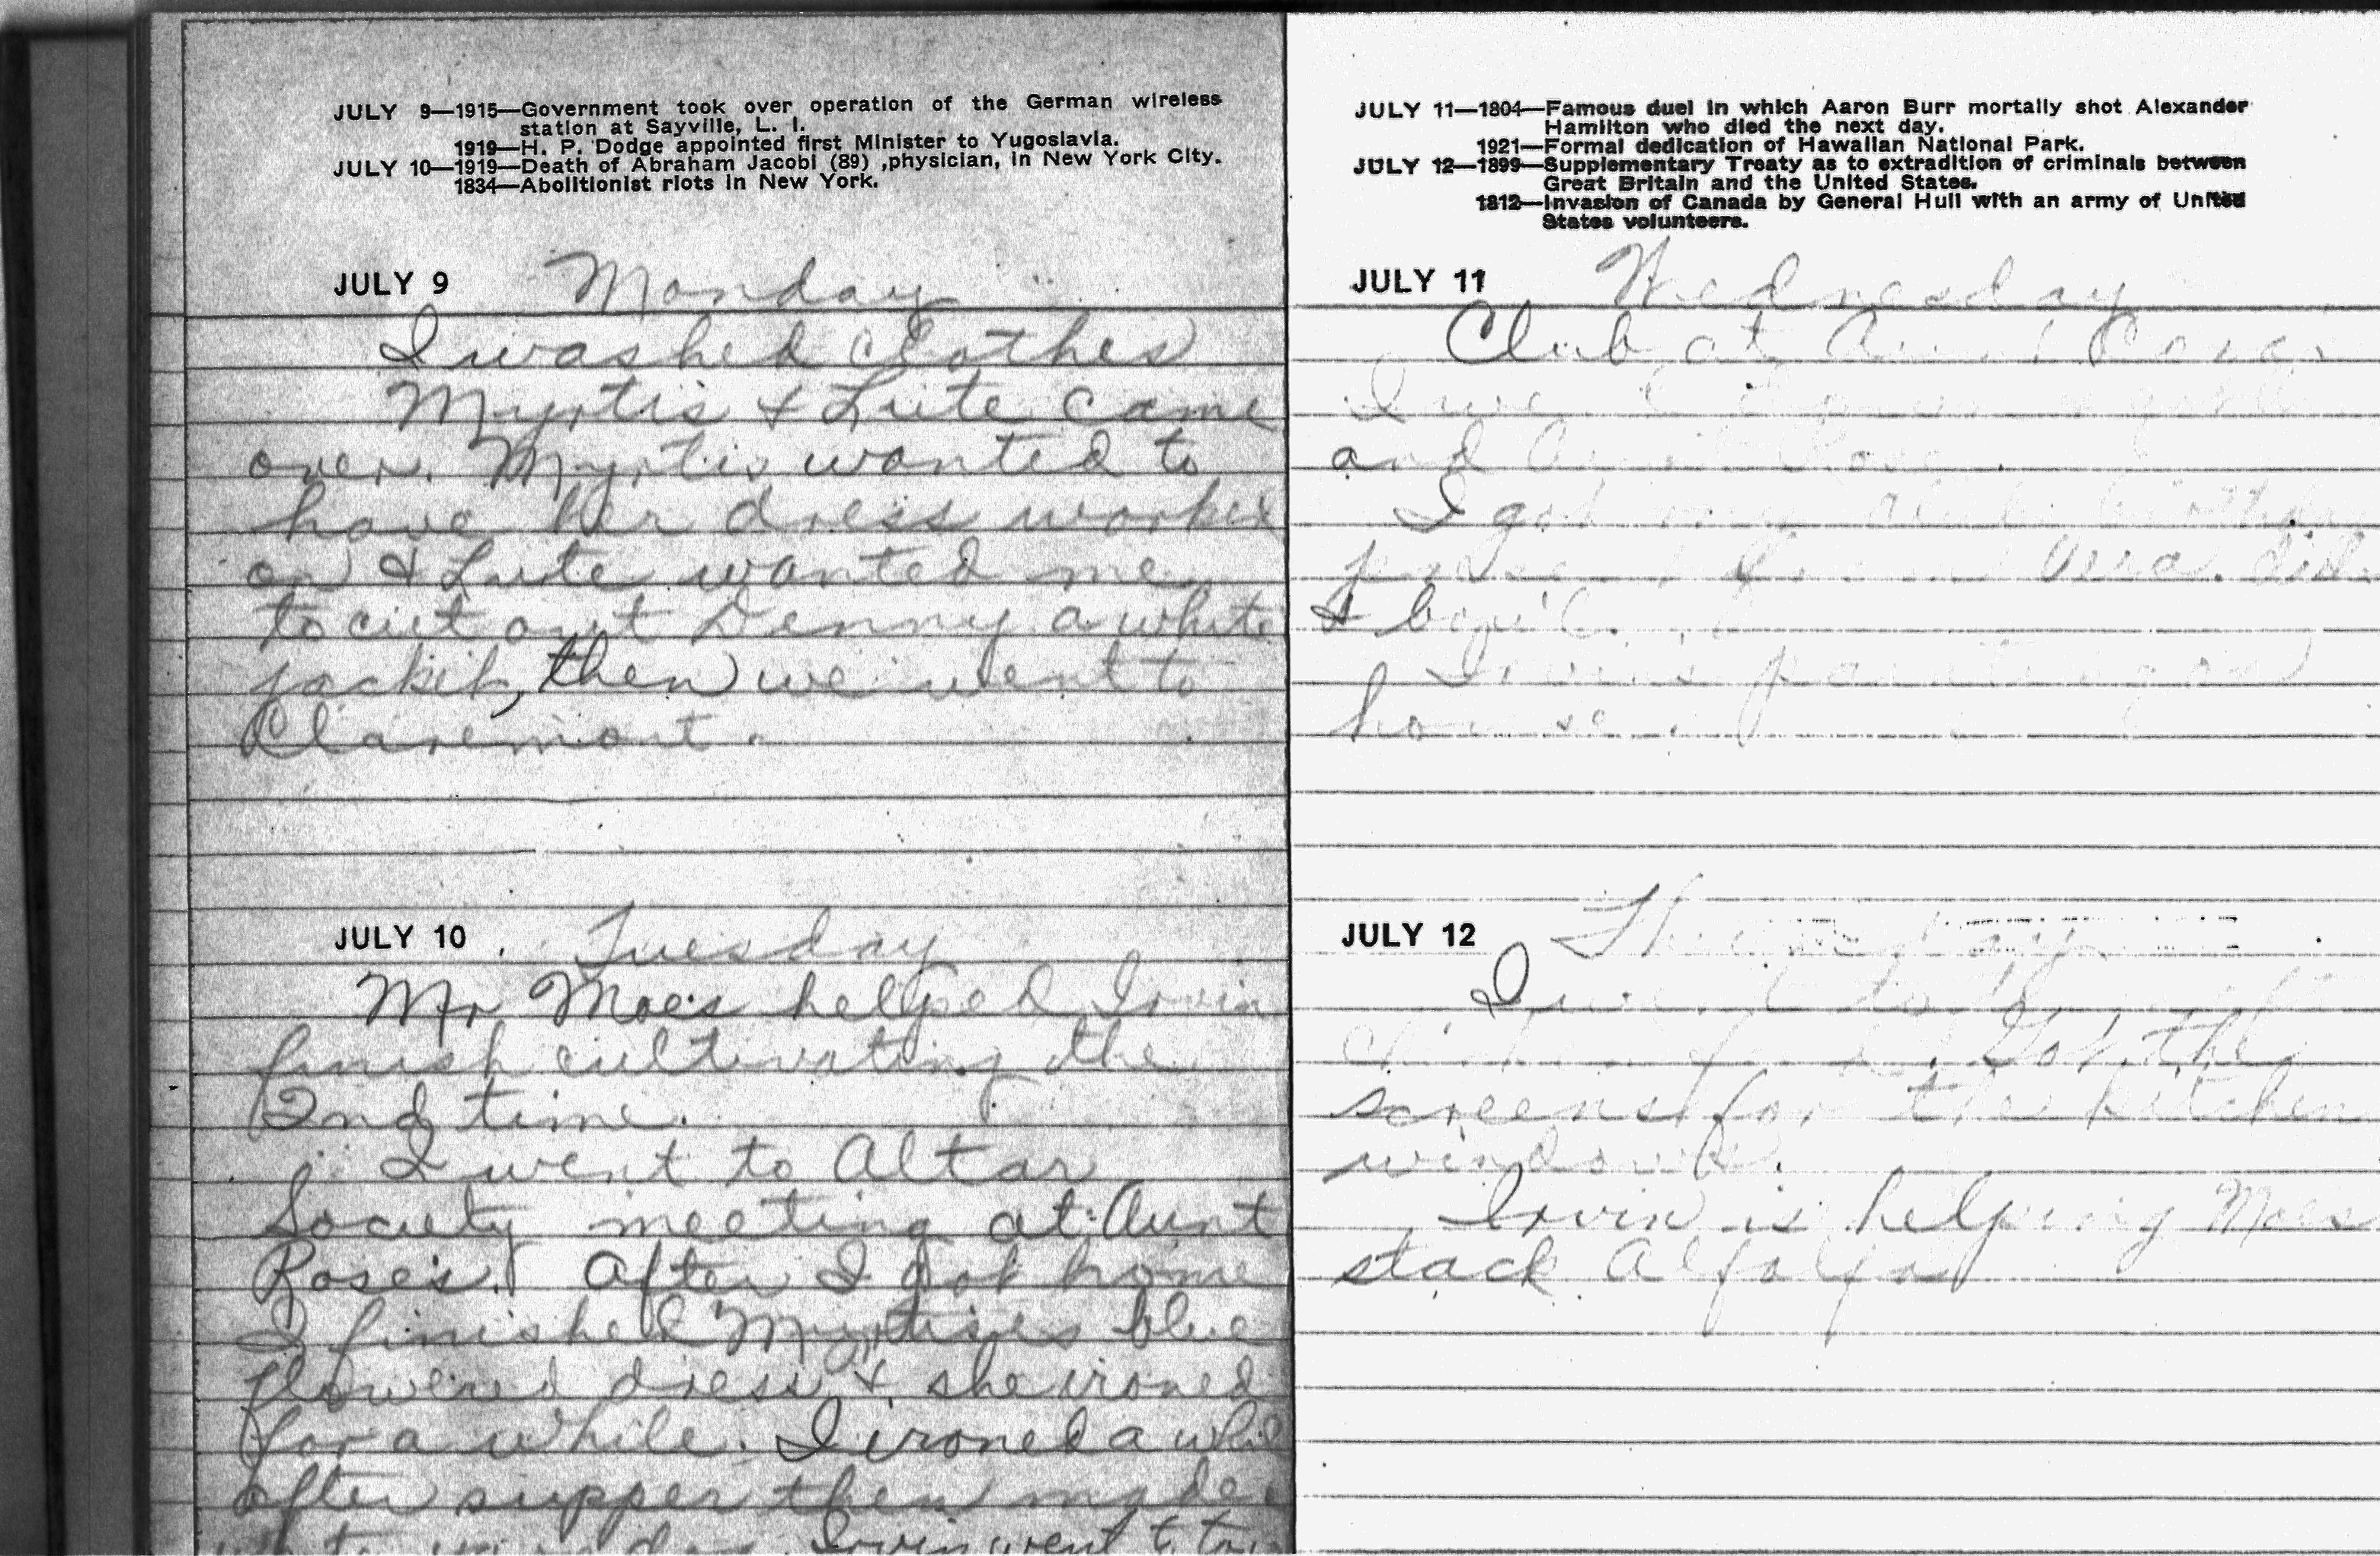 JULY 9—1915—Government took over operation of the German wireless
station at Sayville, L. I.
1919—H. P. Dodge appointed first Minister to Yugoslavia.
JULY 10—1919—Death of Abraham Jacobi (89) ,physician, in New York City.
1834—Abolitionist riots in New York.
JULY 9 Monday
I washed clothes
Myrtis & Lute came
over. Myrtis wanted to
have her dress worked
on & Lute wanted me
to cut out Denny a white
jacket, then we went to
Claremont.
JULY 10 Tuesday
Mr Moes helped Irvin
finish cultivating the
2nd time.
I went to Altar
Society meeting at Aunt
Rose's. After I got home
I finished Myrtises blue
flowered dress & she ironed
for a while. I ironed a while
after supper then made
Irvin went to town
JULY 11—1804—Famous duel in which Aaron Burr mortally shot Alexander
Hamilton who died the next day.
1921—Formal dedication of Hawaiian National Park.
JULY 12—1899—Supplementary Treaty as to extradition of criminals between
Great Britain and the United States.
1812—Invasion of Canada by General Hull with an army of United
States volunteers.
JULY 11 Wednesday
Club at Aunt
I
and
I got my
did
&
Irvin's
house.
JULY 12 Thursday
I went to
Got the
screens for the kitchen
windows.
Irvin is helping Moes
stack Alfalfa